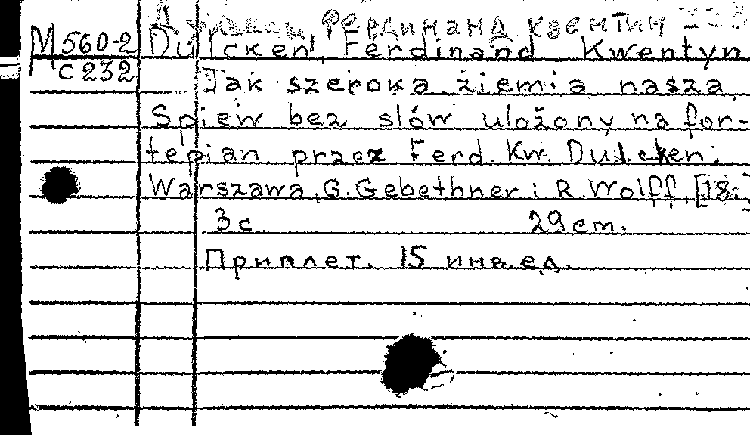 Фердинанд Квентин
М 560-2 Dulcken, Ferdinand Kwentyn
С 232 Jak szeroka ziemia nasza.
Spiew bez słów ułożony na for-
tepian przez Ferd. Kw. Dulcken.
Warszawa, G. Gebethner i R. Wolff, [18.
3 с 29 cm.
Приплет. 15 инв.ед.